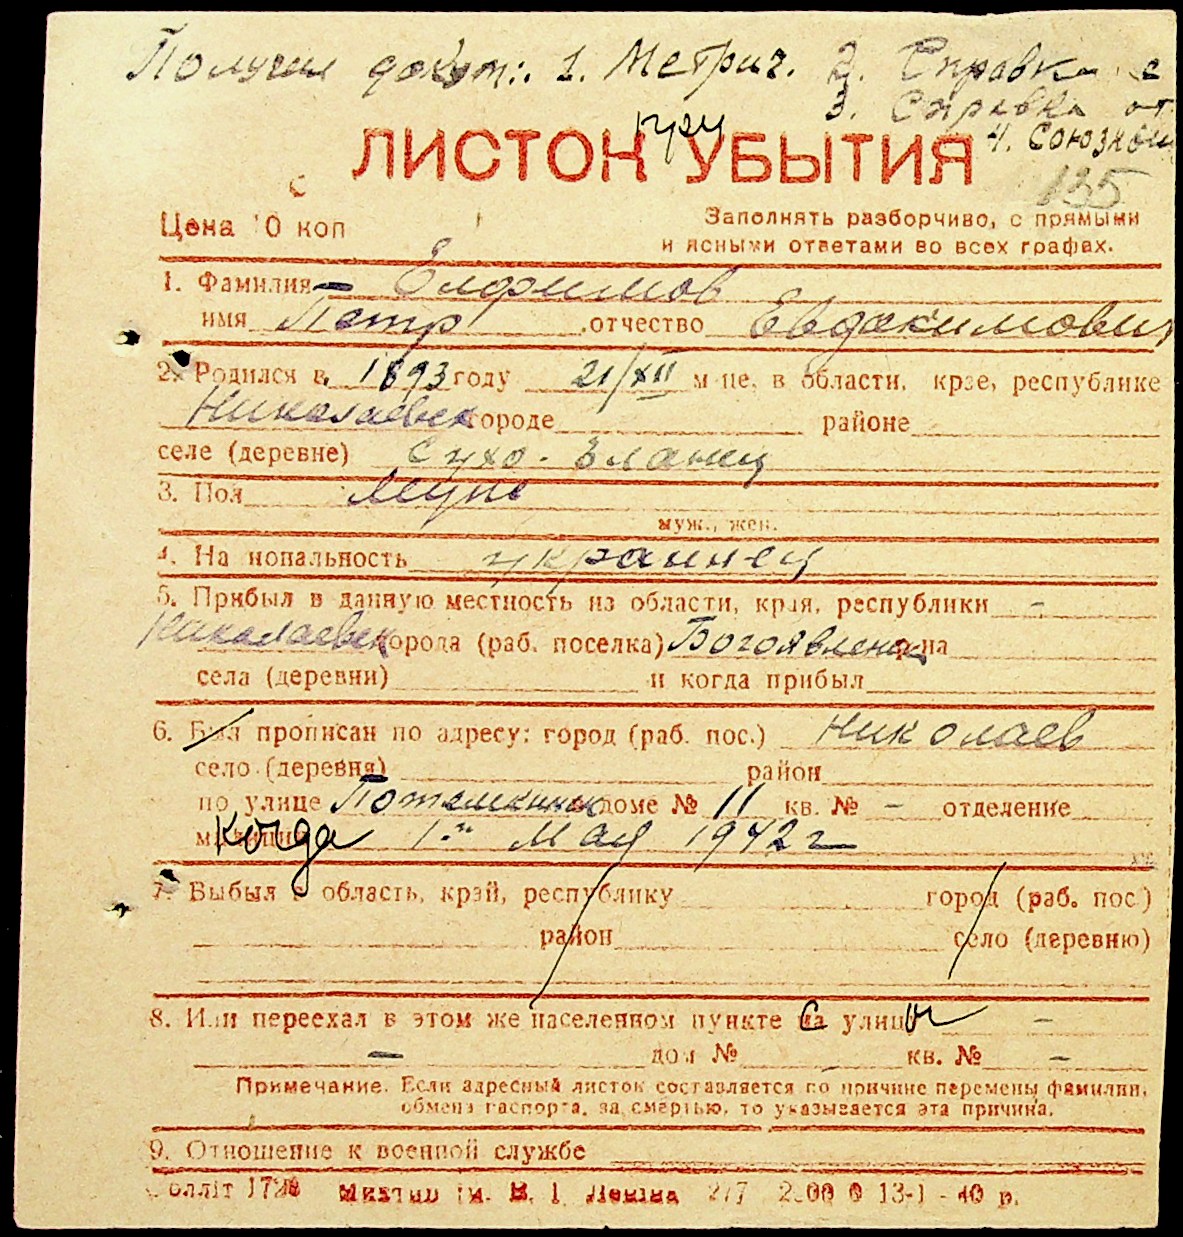 Получил докум: 1. Метрич. 2. Справка с
3. Справка от
4. Союзной
при
ЛИСТОК УБЫТИЯ
135
с
Цена 10 коп
Заполнять разборчиво, с прямыми
и ясными ответами во всех графах.
1. Фамилия Елфимов
имя Петр отчество Евдокимович
2. Родился в 1893 году 21/XII м-це, в области, крае, республике
Николаевск городе районе
селе (деревне) Сухо-Еланец
3. Пол Муж
муж., жен.
4. Национальность украинец
5. Прибыл в данную местность из области, края, республики -
Николаевск города (раб. поселка) Богоявленск р-на
села (деревни) и когда прибыл
6. Был прописан по адресу: город (раб. пос.) Николаев
село (деревня) район
по улице Потемкинск доме № 11 кв. № - отделение
милиции когда 1го Мая 1942 г
7. Выбыл в область, край, республику город (раб. пос.)
район село (деревню)
8. Или переехал в этом же населенном пункте на улицу -
- дом № кв. № -
Примечание. Если адресный листок составляется по причине перемены фамилии,
обмена паспорта, за смертью, то указывается эта причина.
9. Отношение к военной службе
Ленина 217 13-1-40 р.